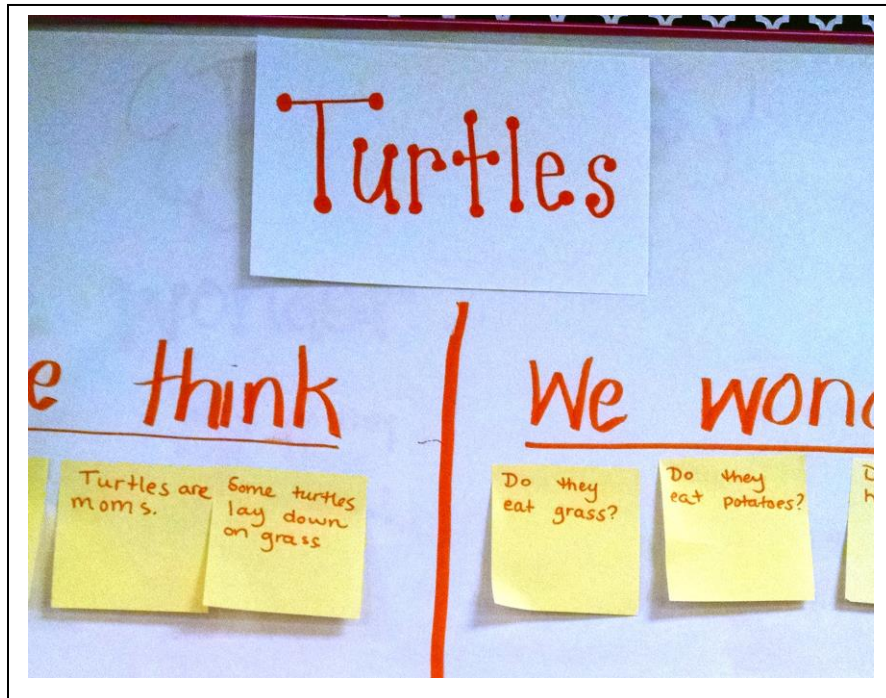 Turtles
think
We
Turtles are
moms.
Some turtles
lay down
on grass
Do they
eat grass?
Do they
eat potatoes?